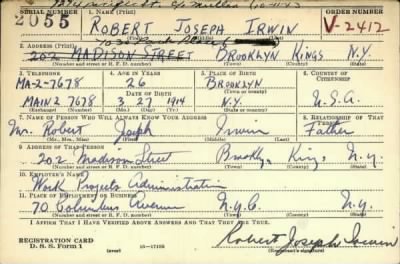 SERIAL NUMBER 1. NAME (Print) ORDER NUMBER
2055 ROBERT JOSEPH IRWIN V-2412
(First) (Middle) (Last)
2. ADDRESS (Print)
202 MADISON STREET BROOKLYN KINGS N.Y.
(Number and street or R. F. D. number) (Town) (County) (State)
3. TELEPHONE 4. AGE IN YEARS 5. PLACE OF BIRTH 6. COUNTRY OF CITIZENSHIP
MA-2-7678 26 BROOKLYN
DATE OF BIRTH
MAIN 2 7678 3 27 1914 N.Y. U.S.A.
(Exchange) (Number) (Mo.) (Day) (Yr.) (State or country)
7. NAME OF PERSON WHO WILL ALWAYS KNOW YOUR ADDRESS 8. RELATIONSHIP OF THAT PERSON
Mr. Robert Joseph Irwin Father
(Mr., Mrs., Miss) (First) (Middle) (Last)
9. ADDRESS OF THAT PERSON
202 Madison Street Brooklyn, Kings N.Y.
(Number and street or R. F. D. number) (Town) (County) (State)
10. EMPLOYER'S NAME
Work Projects Administration
11. PLACE OF EMPLOYMENT OR BUSINESS
70 Columbus Avenue N.Y.C. N.Y.
(Number and street or R. F. D. number) (Town) (County) (State)
I AFFIRM THAT I HAVE VERIFIED ABOVE ANSWERS AND THAT THEY ARE TRUE.
REGISTRATION CARD
D. S. S. Form 1 (over) 16-17105 Robert Joseph Irwin
(Registrant's signature)